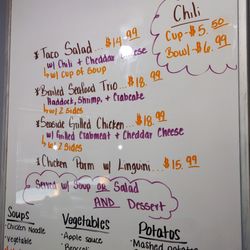 Chili
Cup - $5.50
Bowl - $6.99
* Taco Salad... $14.99
w/ Chili + Cheddar Cheese
w/ Cup of Soup
* Broiled Seafood Trio... $18.99
Haddock, Shrimp, + Crabcake
w/ 2 sides
* Seaside Grilled Chicken... $18.99
w/ Grilled Crabmeat + Cheddar Cheese
w/ 2 sides
* Chicken Parm w/ Linguini... $15.99
Served w/ Soup or Salad
AND Dessert
Soups
• Chicken Noodle
• Vegetable
Vegetables
• Apple sauce
• Broccoli
Potatos
• Mashed potatoes